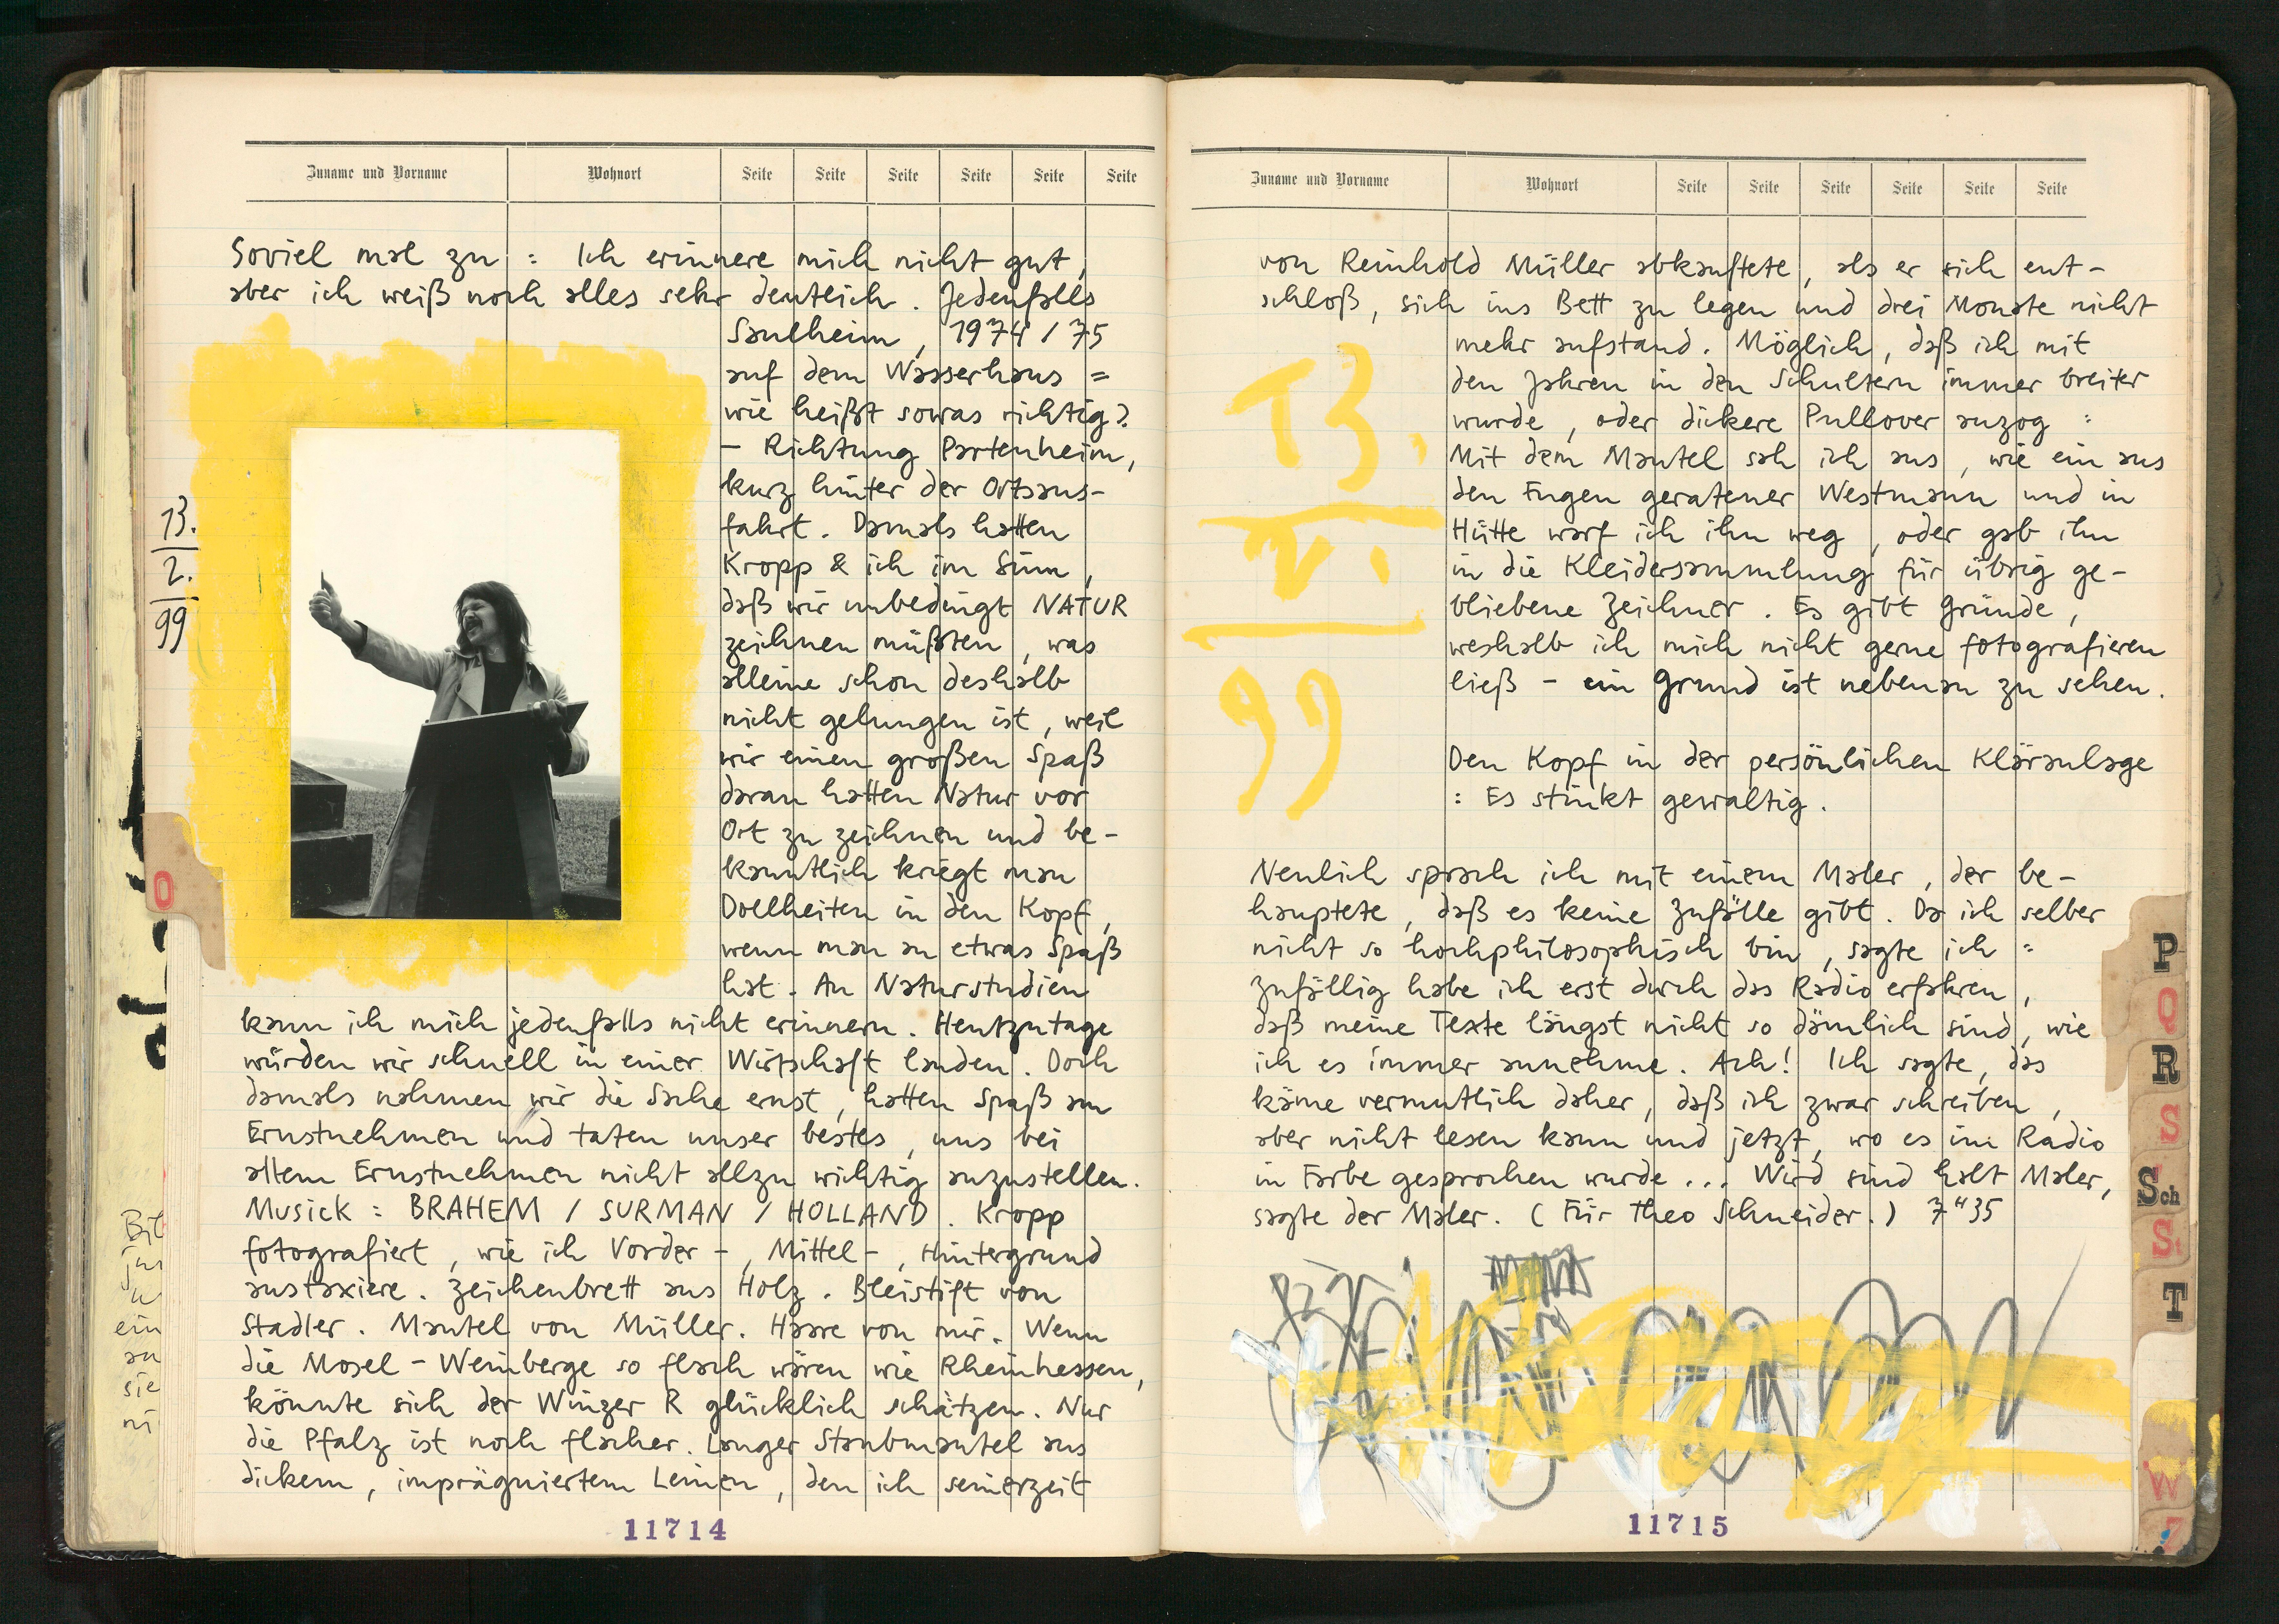 Zuname und Vorname Wohnort Seite Seite Seite Seite Seite Seite
13.
2.
99
Soviel mal zu : Ich erinnere mich nicht gut,
aber ich weiß noch alles sehr deutlich. Jedenfalls
Saulheim, 1974/75
auf dem Wasserhaus =
wie heißt sowas richtig?
– Richtung Partenheim,
kurz hinter der Ortsaus-
fahrt. Damals hatten
Kropp & ich im Sinn,
daß wir unbedingt NATUR
zeichnen müßten, was
alleine schon deshalb
nicht gelungen ist, weil
wir einen großen Spaß
daran hatten Natur vor
Ort zu zeichnen und be-
kanntlich kriegt man
Dollheiten in den Kopf,
wenn man an etwas Spaß
hat. An Naturstudien
kann ich mich jedenfalls nicht erinnern. Heutzutage
würden wir schnell in einer Wirtschaft landen. Doch
damals nahmen wir die Sache ernst, hatten Spaß am
Ernstnehmen und taten unser bestes, uns bei
allem Ernstnehmen nicht allzu wichtig anzustellen.
Musick : BRAHEM / SURMAN / HOLLAND. Kropp
fotografiert, wie ich Vorder-, Mittel-, Hintergrund
austaxiere. Zeichenbrett aus Holz. Bleistift von
Stadler. Mantel von Müller. Haare von mir. Wenn
die Mosel-Weinberge so flach wären wie Rheinhessen,
könnte sich der Winzer R glücklich schätzen. Nur
die Pfalz ist noch flacher. Langer Staubmantel aus
dickem, imprägniertem Leinen, den ich seinerzeit
11714
O
Bil
ein
an
sie
ni
Zuname und Vorname Wohnort Seite Seite Seite Seite Seite Seite
von Reinhold Müller abkauftete, als er sich ent-
schloß, sich ins Bett zu legen und drei Monate nicht
mehr aufstand. Möglich, daß ich mit
den Jahren in den Schultern immer breiter
wurde, oder dickere Pullover anzog :
Mit dem Mantel sah ich aus, wie ein aus
den Fugen geratener Westmann und in
Hütte warf ich ihn weg, oder gab ihn
in die Kleidersammlung für übrig ge-
bliebene Zeichner. Es gibt Gründe,
weshalb ich mich nicht gerne fotografieren
ließ – ein Grund ist nebenan zu sehen.
13.
2.
99
Den Kopf in der persönlichen Kläranlage
: Es stinkt gewaltig.
Neulich sprach ich mit einem Maler, der be-
hauptete, daß es keine Zufälle gibt. Da ich selber
nicht so hochphilosophisch bin, sagte ich :
Zufällig habe ich erst durch das Radio erfahren,
daß meine Texte längst nicht so dämlich sind, wie
ich es immer annehme. Ach! Ich sagte, das
käme vermutlich daher, daß ich zwar schreiben,
aber nicht lesen kann und jetzt, wo es im Radio
in Farbe gesprochen wurde ... Wird sind halt Maler,
sagte der Maler. (Für Theo Schneider.) 7"35
11715
P
Q
R
S
Sch
St
T
W
Z